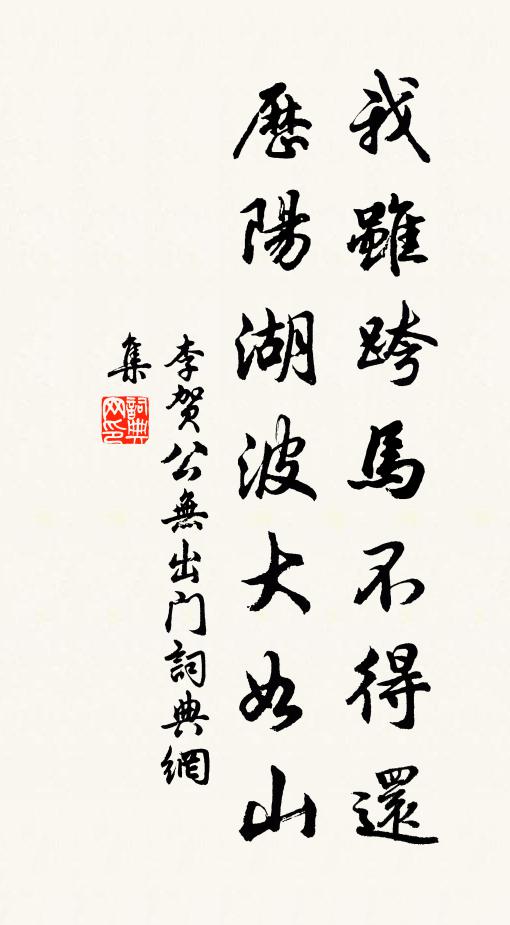 我雖跨馬不得還
歷陽湖波大如山
李賀公無出門詞典網
集
詞典網印